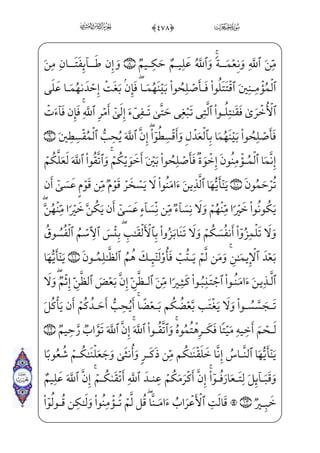 ﴿٤٧٨﴾
مِّنَ ٱللَّهِ وَنِعْمَةً ۚ وَٱللَّهُ عَلِيمٌ حَكِيمٌ ۝٨ وَإِن طَآئِفَتَانِ مِنَ
ٱلْمُؤْمِنِينَ ٱقْتَتَلُوا۟ فَأَصْلِحُوا۟ بَيْنَهُمَا ۖ فَإِنۢ بَغَتْ إِحْدَىٰهُمَا عَلَى
ٱلْأُخْرَىٰ فَقَٰتِلُوا۟ ٱلَّتِى تَبْغِى حَتَّىٰ تَفِىٓءَ إِلَىٰٓ أَمْرِ ٱللَّهِ ۚ فَإِن فَآءَتْ
فَأَصْلِحُوا۟ بَيْنَهُمَا بِٱلْعَدْلِ وَأَقْسِطُوٓا۟ ۖ إِنَّ ٱللَّهَ يُحِبُّ ٱلْمُقْسِطِينَ ۝٩
إِنَّمَا ٱلْمُؤْمِنُونَ إِخْوَةٌ فَأَصْلِحُوا۟ بَيْنَ أَخَوَيْكُمْ ۚ وَٱتَّقُوا۟ ٱللَّهَ لَعَلَّكُمْ
تُرْحَمُونَ ۝١٠ يَٰٓأَيُّهَا ٱلَّذِينَ ءَامَنُوا۟ لَا يَسْخَرْ قَوْمٌ مِّن قَوْمٍ عَسَىٰٓ أَن
يَكُونُوا۟ خَيْرًا مِّنْهُمْ وَلَا نِسَآءٌ مِّن نِّسَآءٍ عَسَىٰٓ أَن يَكُنَّ خَيْرًا مِّنْهُنَّ ۖ
وَلَا تَلْمِزُوٓا۟ أَنفُسَكُمْ وَلَا تَنَابَزُوا۟ بِٱلْأَلْقَٰبِ ۖ بِئْسَ ٱلِٱسْمُ ٱلْفُسُوقُ
بَعْدَ ٱلْإِيمَٰنِ ۚ وَمَن لَّمْ يَتُبْ فَأُو۟لَٰٓئِكَ هُمُ ٱلظَّٰلِمُونَ ۝١١ يَٰٓأَيُّهَا
ٱلَّذِينَ ءَامَنُوا۟ ٱجْتَنِبُوا۟ كَثِيرًا مِّنَ ٱلظَّنِّ إِنَّ بَعْضَ ٱلظَّنِّ إِثْمٌ ۖ وَلَا
تَجَسَّسُوا۟ وَلَا يَغْتَب بَّعْضُكُم بَعْضًا ۚ أَيُحِبُّ أَحَدُكُمْ أَن يَأْكُلَ
لَحْمَ أَخِيهِ مَيْتًا فَكَرِهْتُمُوهُ ۚ وَٱتَّقُوا۟ ٱللَّهَ ۚ إِنَّ ٱللَّهَ تَوَّابٌ رَّحِيمٌ ۝١٢
يَٰٓأَيُّهَا ٱلنَّاسُ إِنَّا خَلَقْنَٰكُم مِّن ذَكَرٍ وَأُنثَىٰ وَجَعَلْنَٰكُمْ شُعُوبًا
وَقَبَآئِلَ لِتَعَارَفُوٓا۟ ۚ إِنَّ أَكْرَمَكُمْ عِندَ ٱللَّهِ أَتْقَىٰكُمْ ۚ إِنَّ ٱللَّهَ عَلِيمٌ
خَبِيرٌ ۝١٣ ۞ قَالَتِ ٱلْأَعْرَابُ ءَامَنَّا ۖ قُل لَّمْ تُؤْمِنُوا۟ وَلَٰكِن قُولُوٓا۟